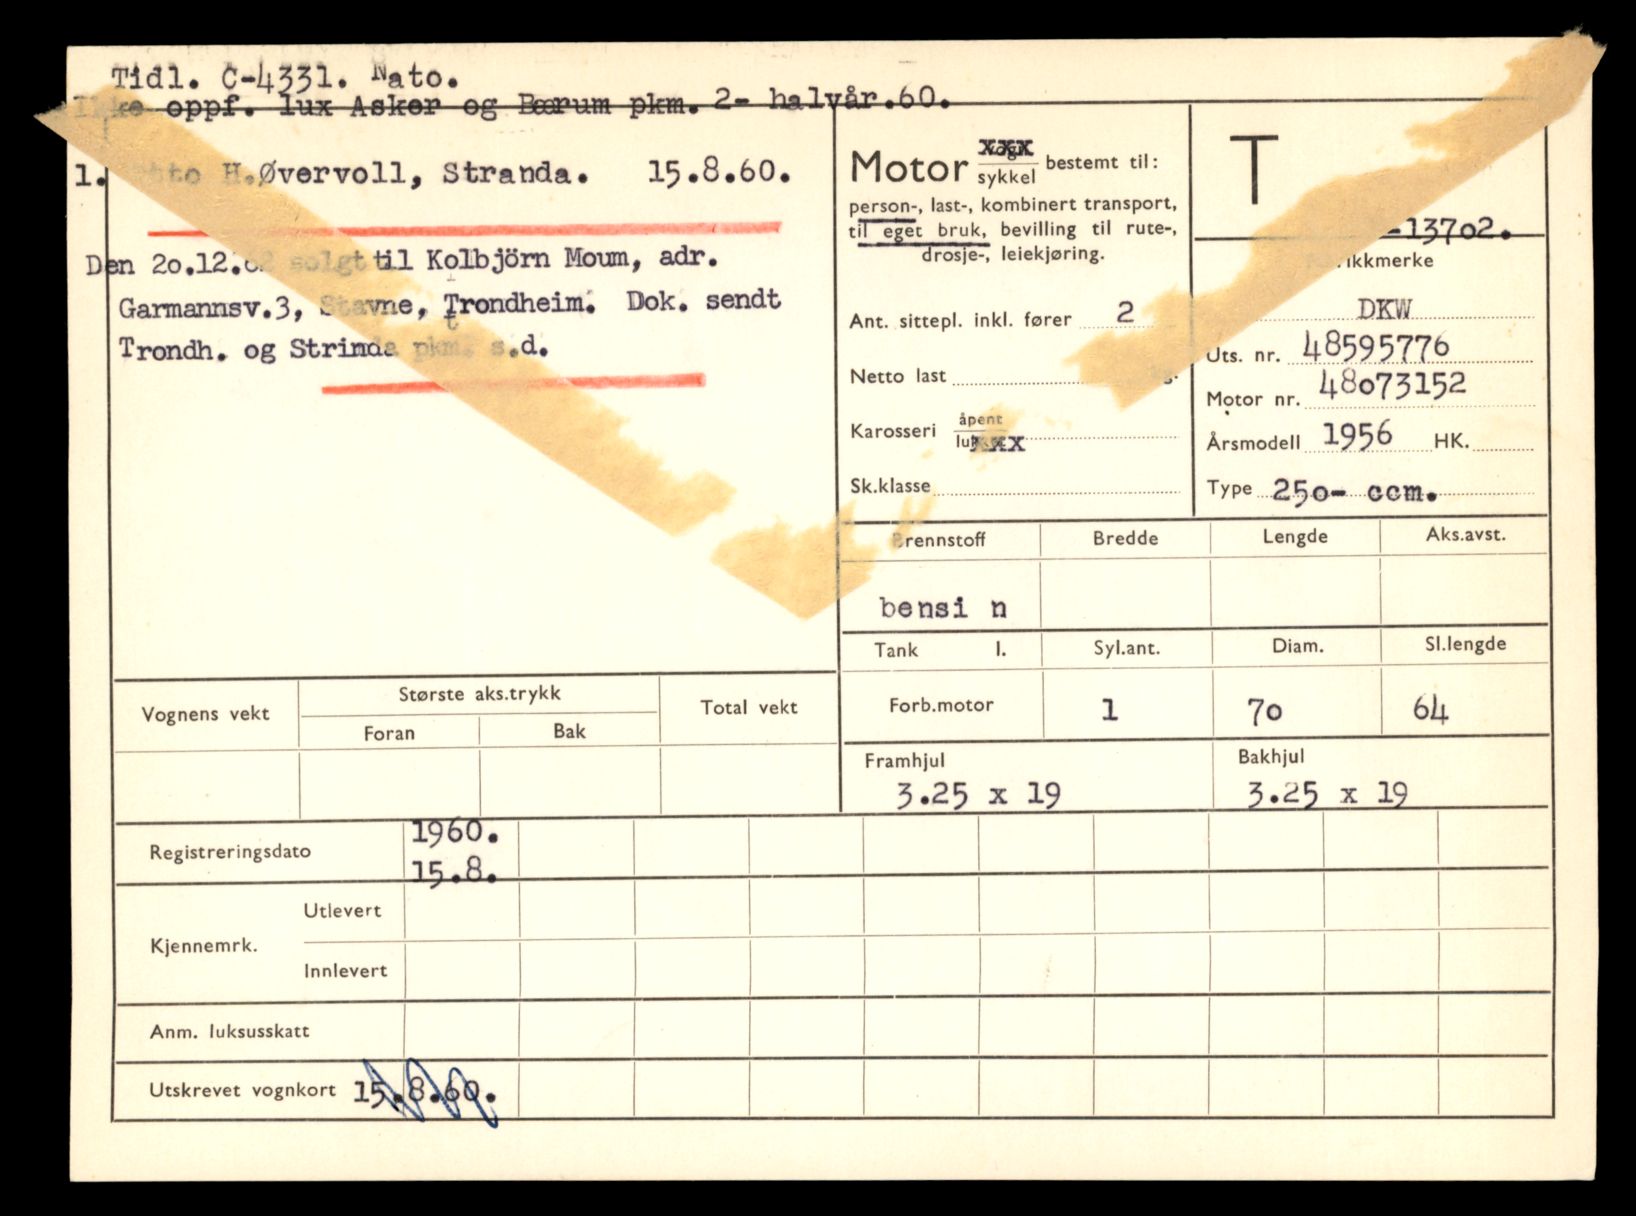 Tidl. C-4331. Nato.
Ikke oppf. lux Asker og Bærum pkm. 2- halvår.60.
1. Otto H.Øvervoll, Stranda. 15.8.60.
Den 20.12.62 solgt til Kolbjörn Moum, adr.
Garmannsv.3, Stavne, Trondheim. Dok. sendt
Trondh. og Strinda pkm. s.d.
Motor vogn sykkel bestemt til:
person-, last-, kombinert transport,
til eget bruk, bevilling til rute-,
drosje-, leiekjøring.
Ant. sittepl. inkl. fører 2
Netto last kg.
Karosseri åpent
Sk.klasse
T
-13702.
DKW
Uts. nr. 48595776
Motor nr. 48073152
Årsmodell 1956 HK.
Type 250- ccm.
Brennstoff Bredde Lengde Aks.avst.
bensi n
Tank l. Syl.ant. Diam. Sl.lengde
Forb.motor 1 70 64
Framhjul Bakhjul
3.25 x 19 3.25 x 19
Vognens vekt Største aks.trykk Total vekt
Foran Bak
Registreringsdato 1960.
15.8.
Kjennemrk. Utlevert
Innlevert
Anm. luksusskatt
Utskrevet vognkort 15.8.60.